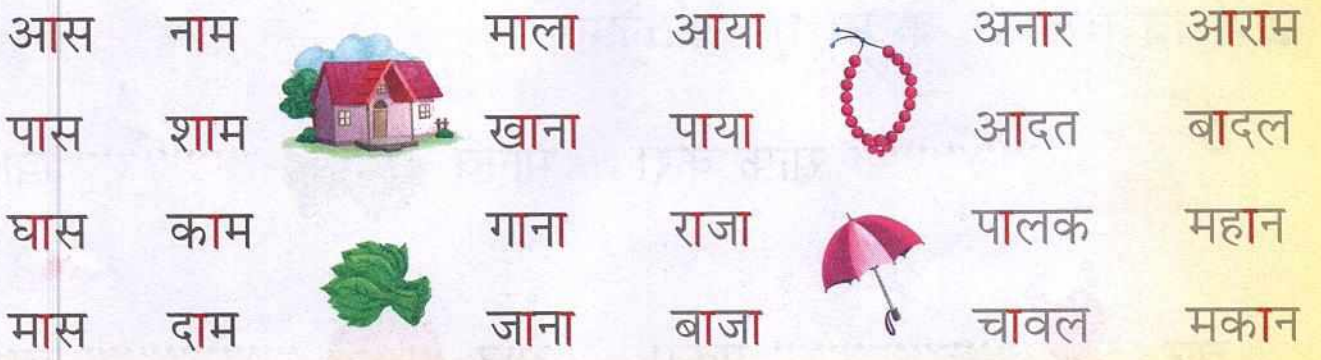 आस नाम माला आया अनार आराम
पास शाम खाना पाया आदत बादल
घास काम गाना राजा पालक महान
मास दाम जाना बाजा चावल मकान